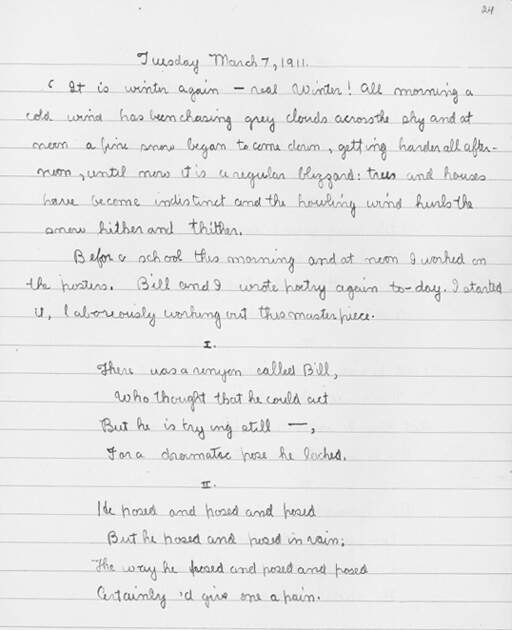 24
Tuesday March 7, 1911.
It is winter again — real Winter! All morning a
cold wind has been chasing grey clouds across the sky and at
noon a fine snow began to come down, getting harder all after-
noon, until now it is a regular blizzard: trees and houses
have become indistinct and the howling wind hurls the
snow hither and thither.
Before school this morning and at noon I worked on
the posters. Bill and I wrote poetry again to-day. I started
it, laboriously working out this masterpiece.
I.
There was a called Bill,
Who thought that he could act
But he is trying still —,
For a dramatic pose he lacked.
II.
He posed and posed and posed
But he posed and posed in vain;
The way he posed and posed and posed
Certainly 'd give one a pain.